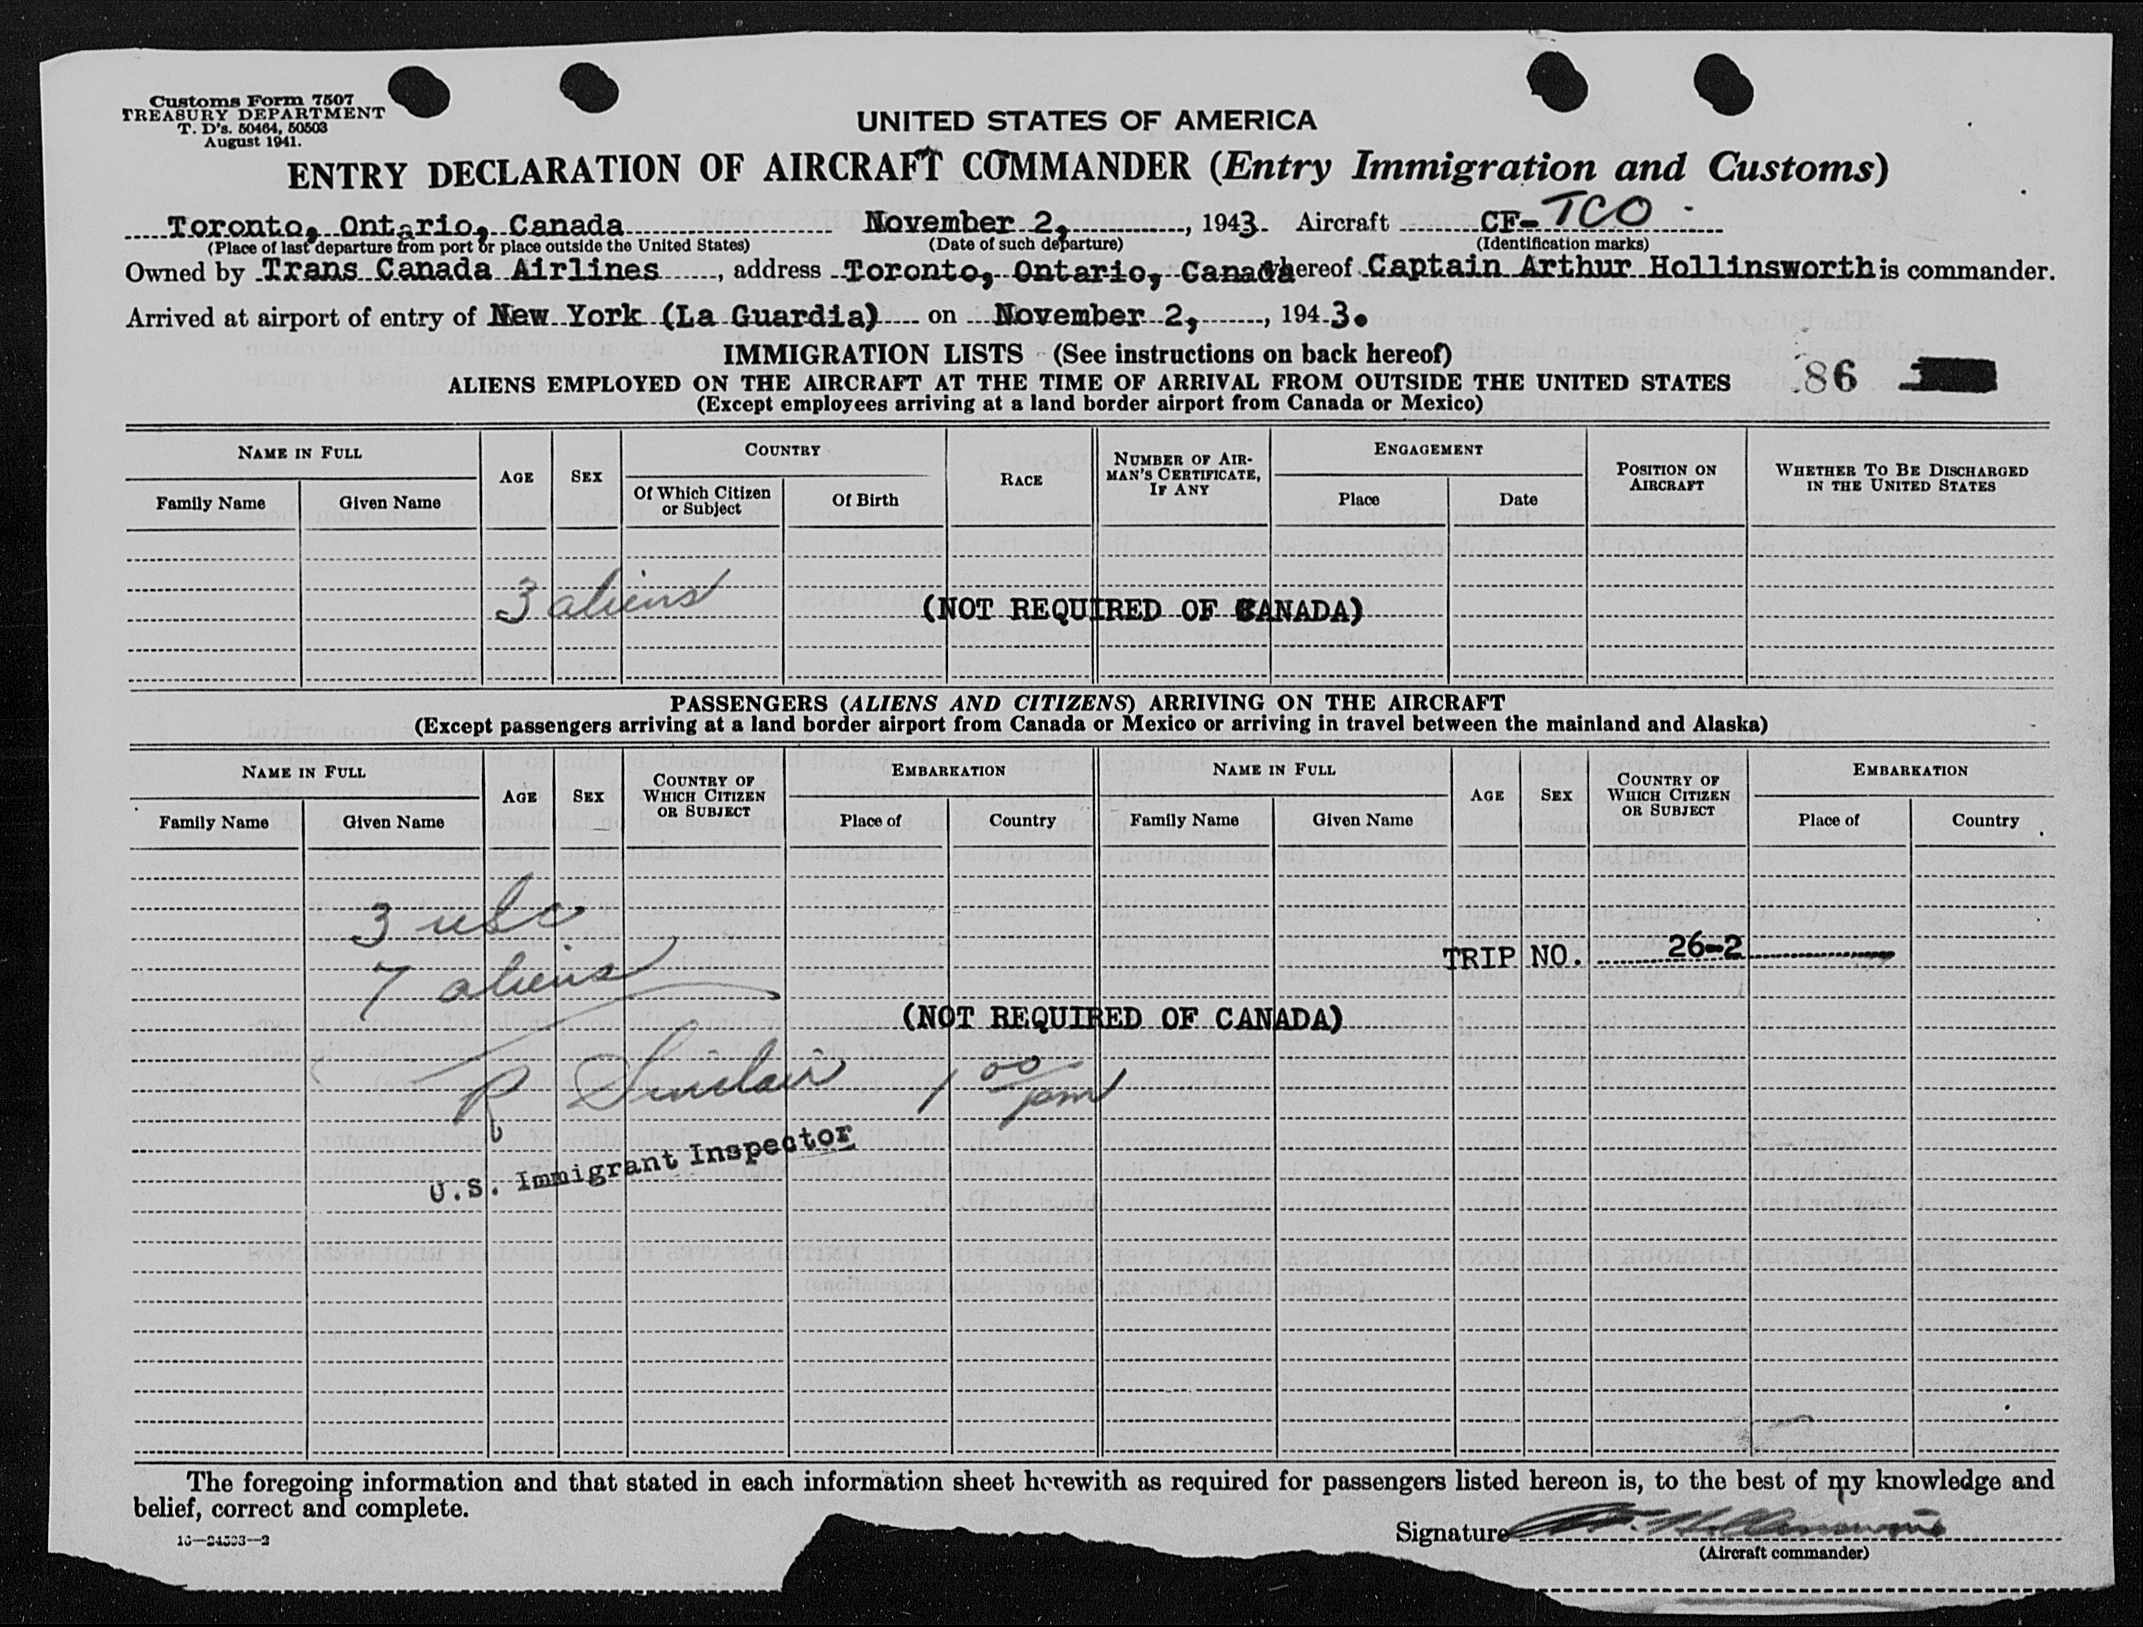 Customs Form 7507
TREASURY DEPARTMENT
T. D's. 50464, 50503
August 1941.
UNITED STATES OF AMERICA
ENTRY DECLARATION OF AIRCRAFT COMMANDER (Entry Immigration and Customs)
Toronto, Ontario, Canada November 2, 1943 Aircraft CF-TCO
(Place of last departure from port or place outside the United States) (Date of such departure) (Identification marks)
Owned by Trans Canada Airlines, address Toronto, Ontario, Canada whereof Captain Arthur Hollinsworth is commander.
Arrived at airport of entry of New York (La Guardia) on November 2, 1943.
IMMIGRATION LISTS (See instructions on back hereof)
ALIENS EMPLOYED ON THE AIRCRAFT AT THE TIME OF ARRIVAL FROM OUTSIDE THE UNITED STATES 86
(Except employees arriving at a land border airport from Canada or Mexico)
NAME IN FULL AGE SEX COUNTRY RACE NUMBER OF AIRMAN'S CERTIFICATE, IF ANY ENGAGEMENT POSITION ON AIRCRAFT WHETHER TO BE DISCHARGED IN THE UNITED STATES
Family Name Given Name Of Which Citizen or Subject Of Birth Place Date
3 aliens (NOT REQUIRED OF CANADA)
PASSENGERS (ALIENS AND CITIZENS) ARRIVING ON THE AIRCRAFT
(Except passengers arriving at a land border airport from Canada or Mexico or arriving in travel between the mainland and Alaska)
NAME IN FULL AGE SEX COUNTRY OF WHICH CITIZEN OR SUBJECT EMBARKATION NAME IN FULL AGE SEX COUNTRY OF WHICH CITIZEN OR SUBJECT EMBARKATION
Family Name Given Name Place of Country Family Name Given Name Place of Country
3 usc
7 aliens TRIP NO. 26-2
(NOT REQUIRED OF CANADA)
R Sinclair 1 00/pm
U.S. Immigrant Inspector
The foregoing information and that stated in each information sheet herewith as required for passengers listed hereon is, to the best of my knowledge and
belief, correct and complete.
16—24533—2
Signature Hollinsworth
(Aircraft commander)